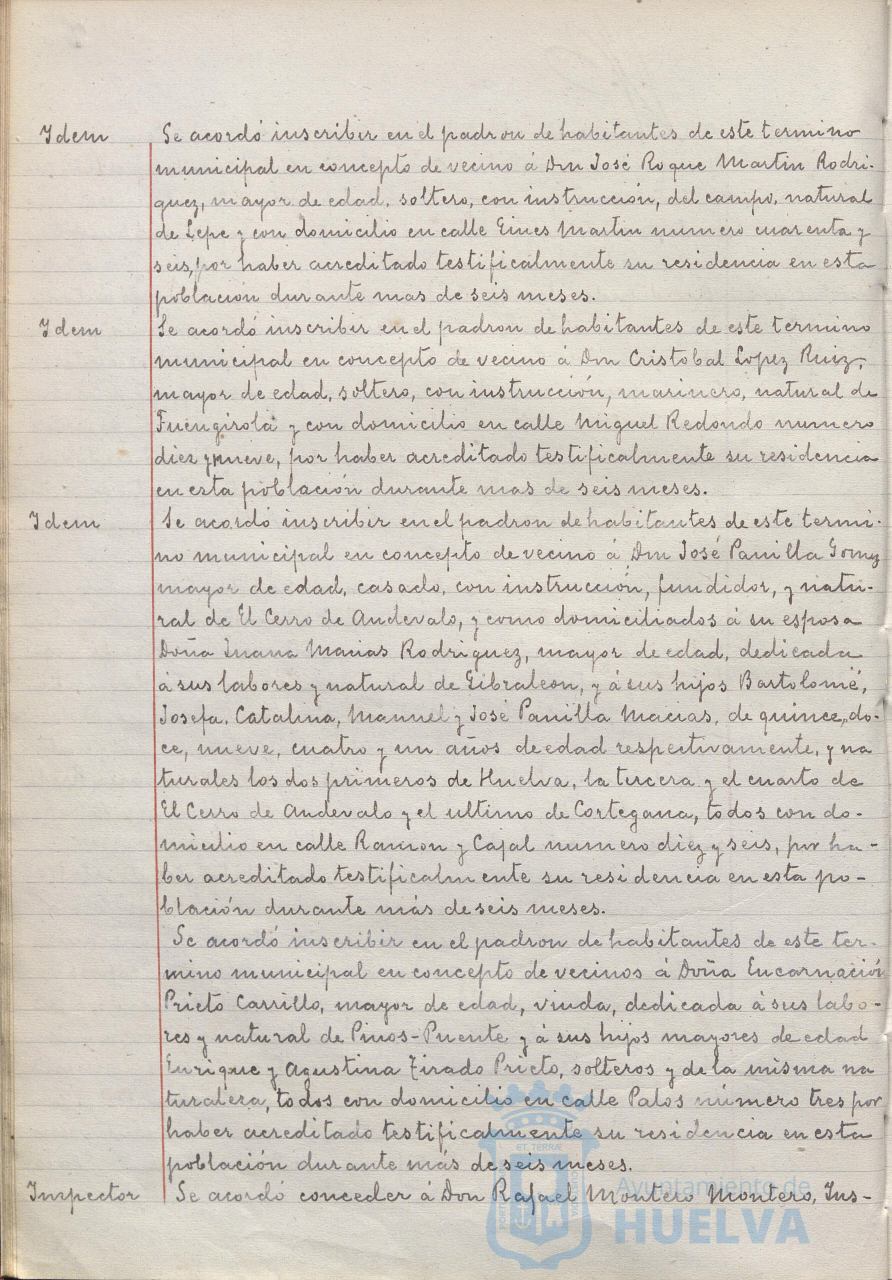 Idem Se acordó inscribir en el padron de habitantes de este termino
municipal en concepto de vecino á Don José Roque Martin Rodri-
guez, mayor de edad, soltero, con instrucción, del campo, natural
de Lepe y con domicilio en calle Gines Martin numero cuarenta y
seis, por haber acreditado testificalmente su residencia en esta
población durante mas de seis meses.
Idem Se acordó inscribir en el padron de habitantes de este termino
municipal en concepto de vecino á Don Cristobal Lopez Ruiz,
mayor de edad, soltero, con instrucción, marinero, natural de
Fuengirola y con domicilio en calle Miguel Redondo numero
diez y nueve, por haber acreditado testificalmente su residencia
en esta población durante mas de seis meses.
Idem Se acordó inscribir en el padron de habitantes de este termi-
no municipal en concepto de vecino á Don José Panilla Gomez
mayor de edad, casado, con instrucción, fundidor, y natu-
ral de El Cerro de Andevalo, y como domiciliados á su esposa
Doña Juana Macias Rodriguez, mayor de edad, dedicada
á sus labores y natural de Gibraleon, y á sus hijos Bartolomé,
Josefa, Catalina, Manuel y José Panilla Macias, de quince, do-
ce, nueve, cuatro y un años de edad respectivamente, y na
turales los dos primeros de Huelva, la tercera y el cuarto de
El Cerro de Andevalo y el ultimo de Cortegana, todos con do-
micilio en calle Ramon y Cajal numero diez y seis, por ha-
ber acreditado testificalmente su residencia en esta po-
blación durante más de seis meses.
Se acordó inscribir en el padron de habitantes de este ter-
mino municipal en concepto de vecinos á Doña Encarnación
Prieto Carrillo, mayor de edad, viuda, dedicada á sus labo-
res y natural de Pinos-Puente y á sus hijos mayores de edad
Enrique y Agustina Tirado Prieto, solteros y de la misma na
turaleza, todos con domicilio en calle Palos número tres por
haber acreditado testificalmente su residencia en esta
población durante más de seis meses.
Inspector Se acordó conceder á Don Rafael Montero Montero, Ins-
Ayuntamiento de
HUELVA